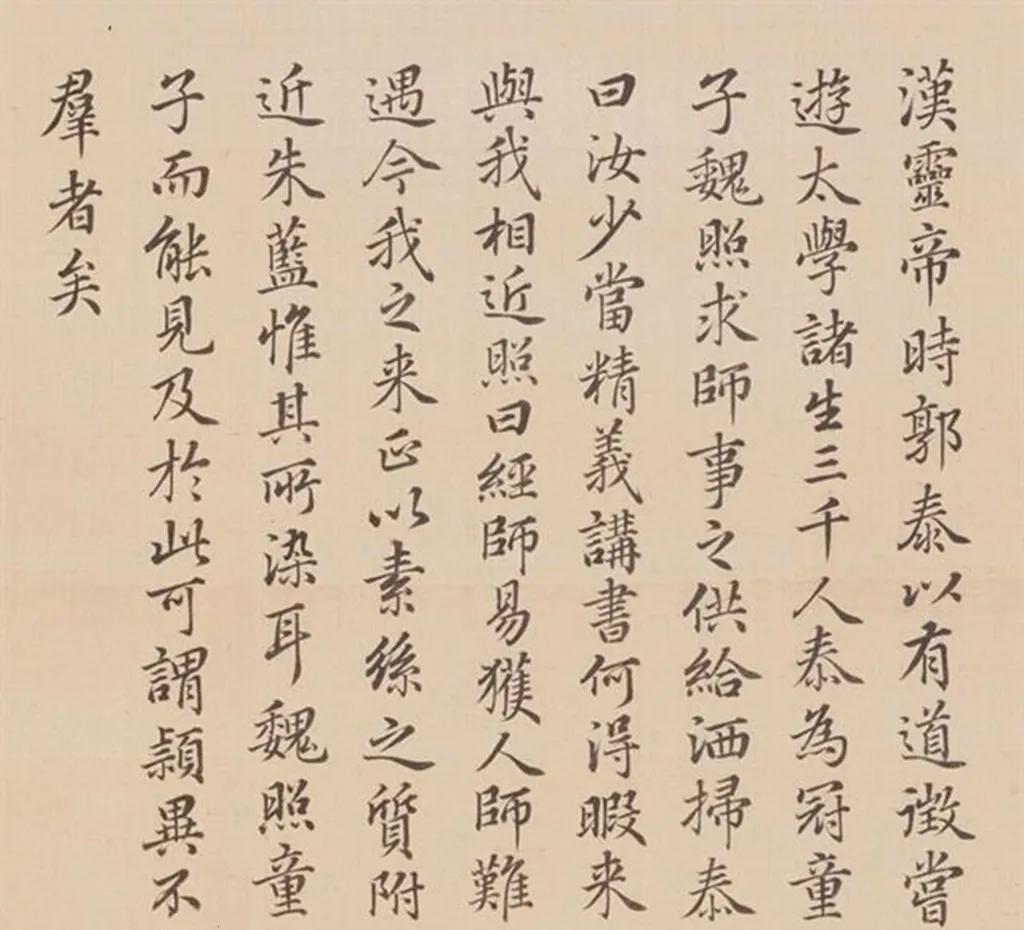 漢靈帝時郭泰以有道徵嘗
遊太學諸生三千人泰為冠童
子魏照求師事之供給洒掃泰
曰汝少當精義講書何得暇来
與我相近照曰經師易獲人師難
遇今我之来正以素絲之質附
近朱藍惟其所染耳魏照童
子而能見及於此可謂穎異不
羣者矣